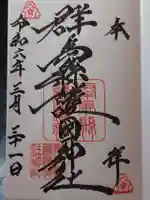 奉
拝
群馬縣護国神社
令和六年三月二十一日